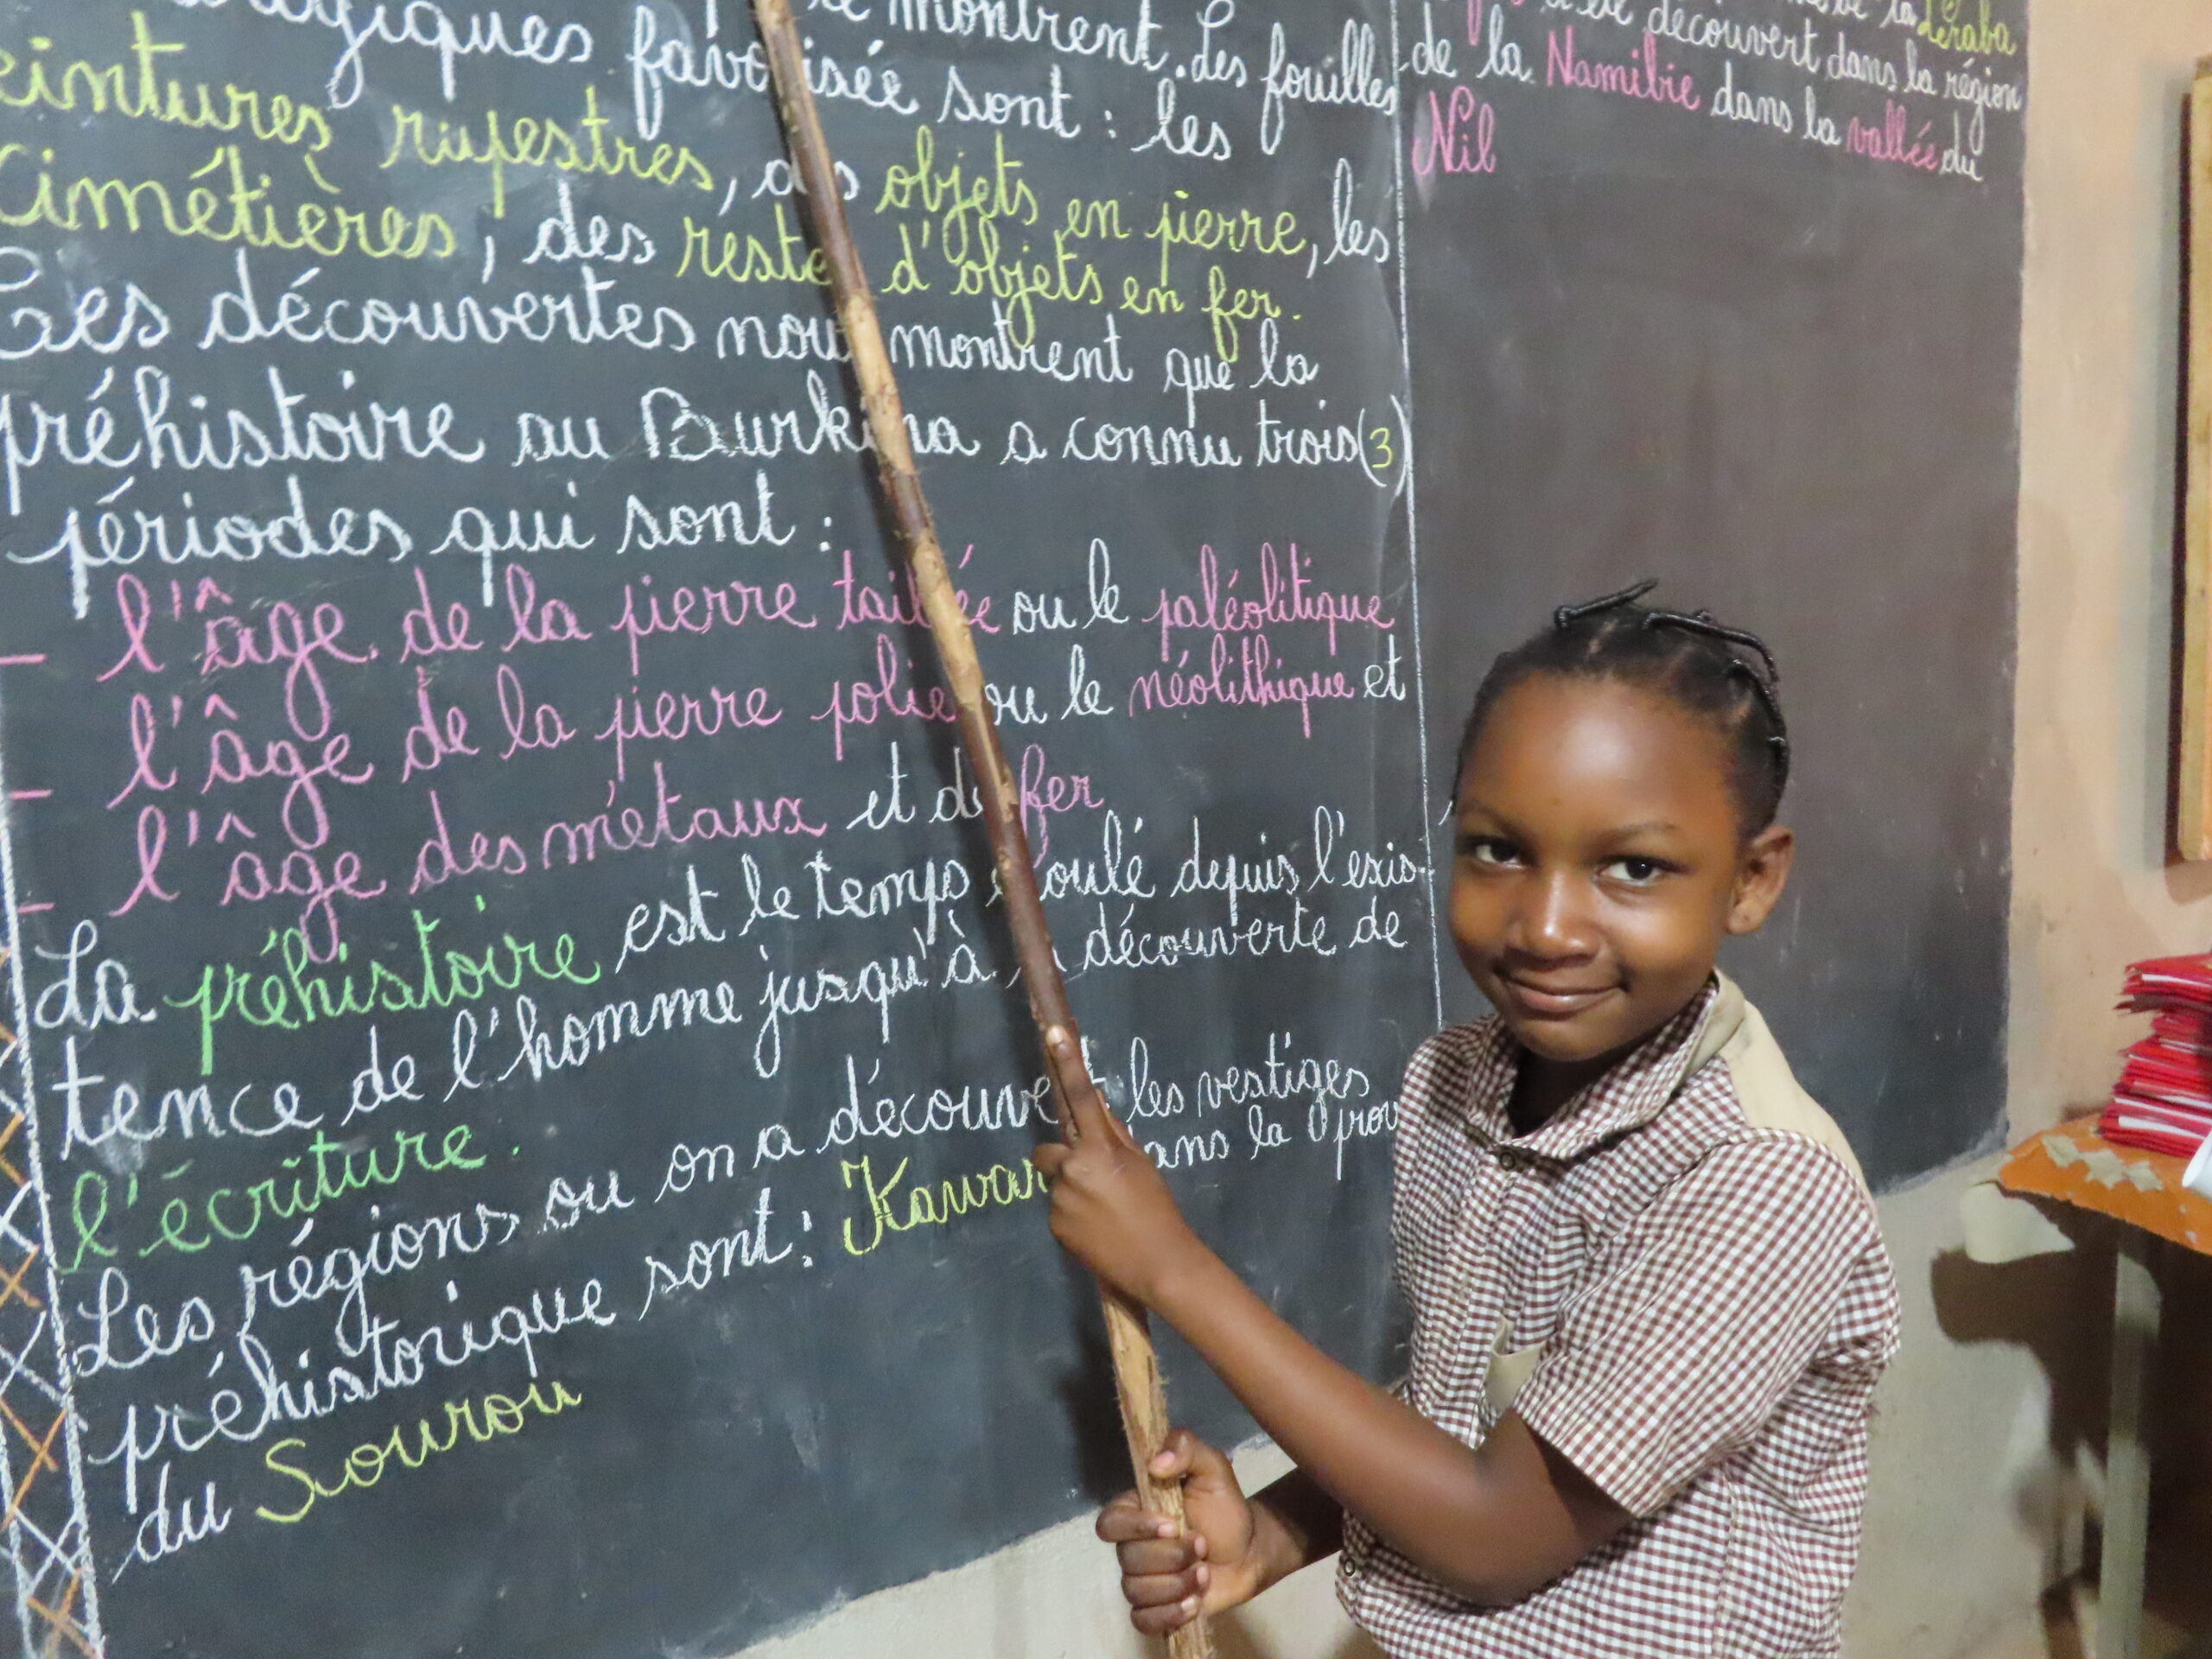 montrent. Les fouilles
favo isée sont : les
eintures rupestres, d s objets en pierre, les
cimétières, des reste d'objets en fer.
Ces découvertes nou montrent que la
préhistoire au Burkina a connu trois (3)
périodes qui sont :
- l'âge de la pierre taillée ou le paléolitique
- l'âge de la pierre polie ou le néolithique et
- l'âge des métaux et du fer
La préhistoire est le temps écoulé depuis l'exis-
tence de l'homme jusqu'à découverte de
l'écriture.
Les régions ou on a découvert les vestiges
préhistorique sont : Kawar ans la prov
du Sourou
de la Léraba
été découvert dans la région
de la Namibie dans la vallée du
Nil